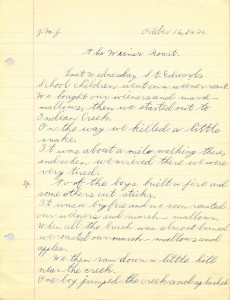 J.M.J. October 16, 19
The Weiner Roast.
Last Wednesday St. Edwards
School children went on a weiner roast.
We bought our weiners and marsh-
mallows, then we started out to
Indian Creek.
On the way we killed a little
snake.
It was about a mile walking there,
and when we arrived there we were
very tired.
Two of the boys built a fire and
some others cut sticks.
It was a big fire and we soon roasted
our weiners and marsh-mallows.
When all the brush was almost burned
we roasted our marsh-mallows and
apples.
We then ran down a little hill
near the creek.
One boy jumped the creek and